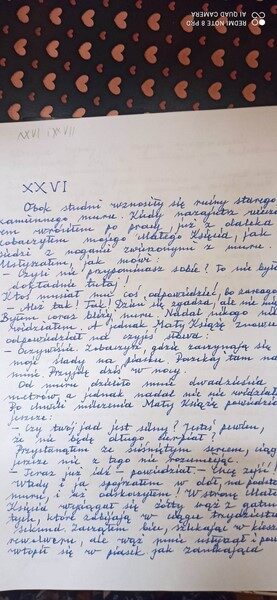 REDMI NOTE 8 PRO
AI QUAD CAMERA
XXVI i XXVII
XXVI
Obok studni wznosiły się ruiny starego
kamiennego muru. Kiedy nazajutrz wiecz
em wróciłem po pracy, już z daleka
zobaczyłem mojego Małego Księcia, jak
siedzi z nogami zwieszonymi z muru
Usłyszałem, jak mówi:
– Czyli nie przypominasz sobie? to nie był
dokładnie tutaj!
Ktoś musiał mu coś odpowiedzieć, bo zareago
– Ależ tak! tak, Dzień się zgadza, ale nie mie
Byłem coraz bliżej muru. Nadal nikogo nie
widziałem. A jednak Mały Książę znowu
odpowiedział na czyjeś słowa:
– Oczywiście. Zobaczysz, gdzie zaczynają się
moje ślady na piasku. Poczekaj tam na
mnie. Przyjdę dziś w nocy
Od muru dzieliło mnie dwadzieścia
metrów a jednak nadal nic nie widziałe
Po chwili milczenia Mały Książę powiedzia
jeszcze:
– Czy twój jad jest silny? Jesteś pewien,
że nie będę długo cierpiał?
Przystanąłem ze ściśniętym sercem, ciąg
jeszcze nic z tego nie rozumiejąc.
– Teraz już idź – powiedział. – Chcę zejść!
Wtedy i ja spojrzałem w dół, na podstaw
muru, i aż odskoczyłem! W stronę Małe
Księcia wyciągał się żółty wąż z gatun
tych, które zabijają w ciągu trzydziestu
sekund. Zacząłem biec, szukając w kiesz
rewolweru, ale wąż mnie usłyszał i pow
wtopił się w piasek jak zanikająca